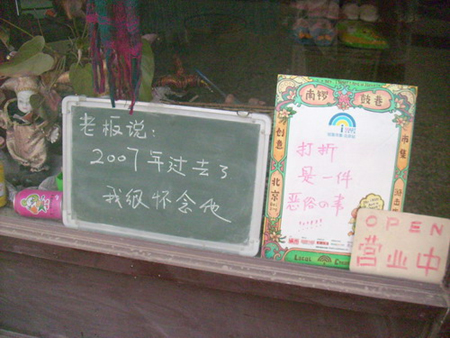 老板说：
2007年过去了
我很怀念他
南锣
鼓巷
创意
北京
打折
是一件
恶俗の事
......
OPEN
营业中